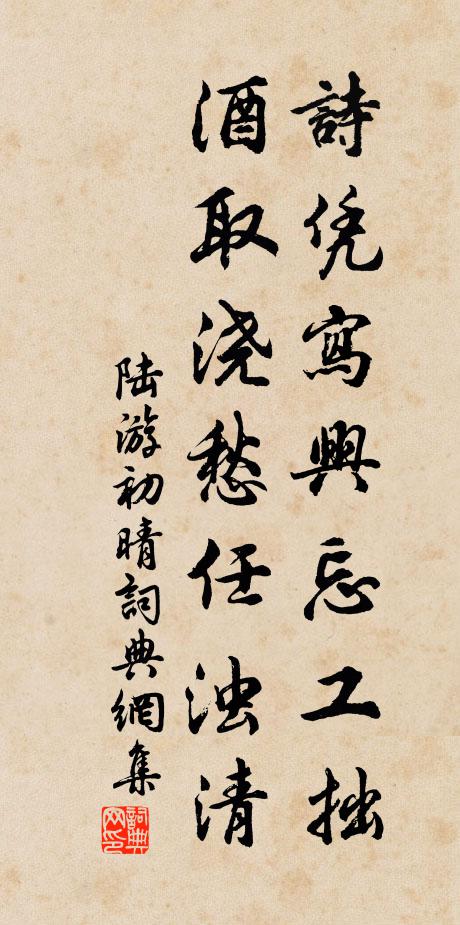 詩凭寫興忘工拙
酒取浇愁任浊清
陆游初晴詞典網集
詞典网印